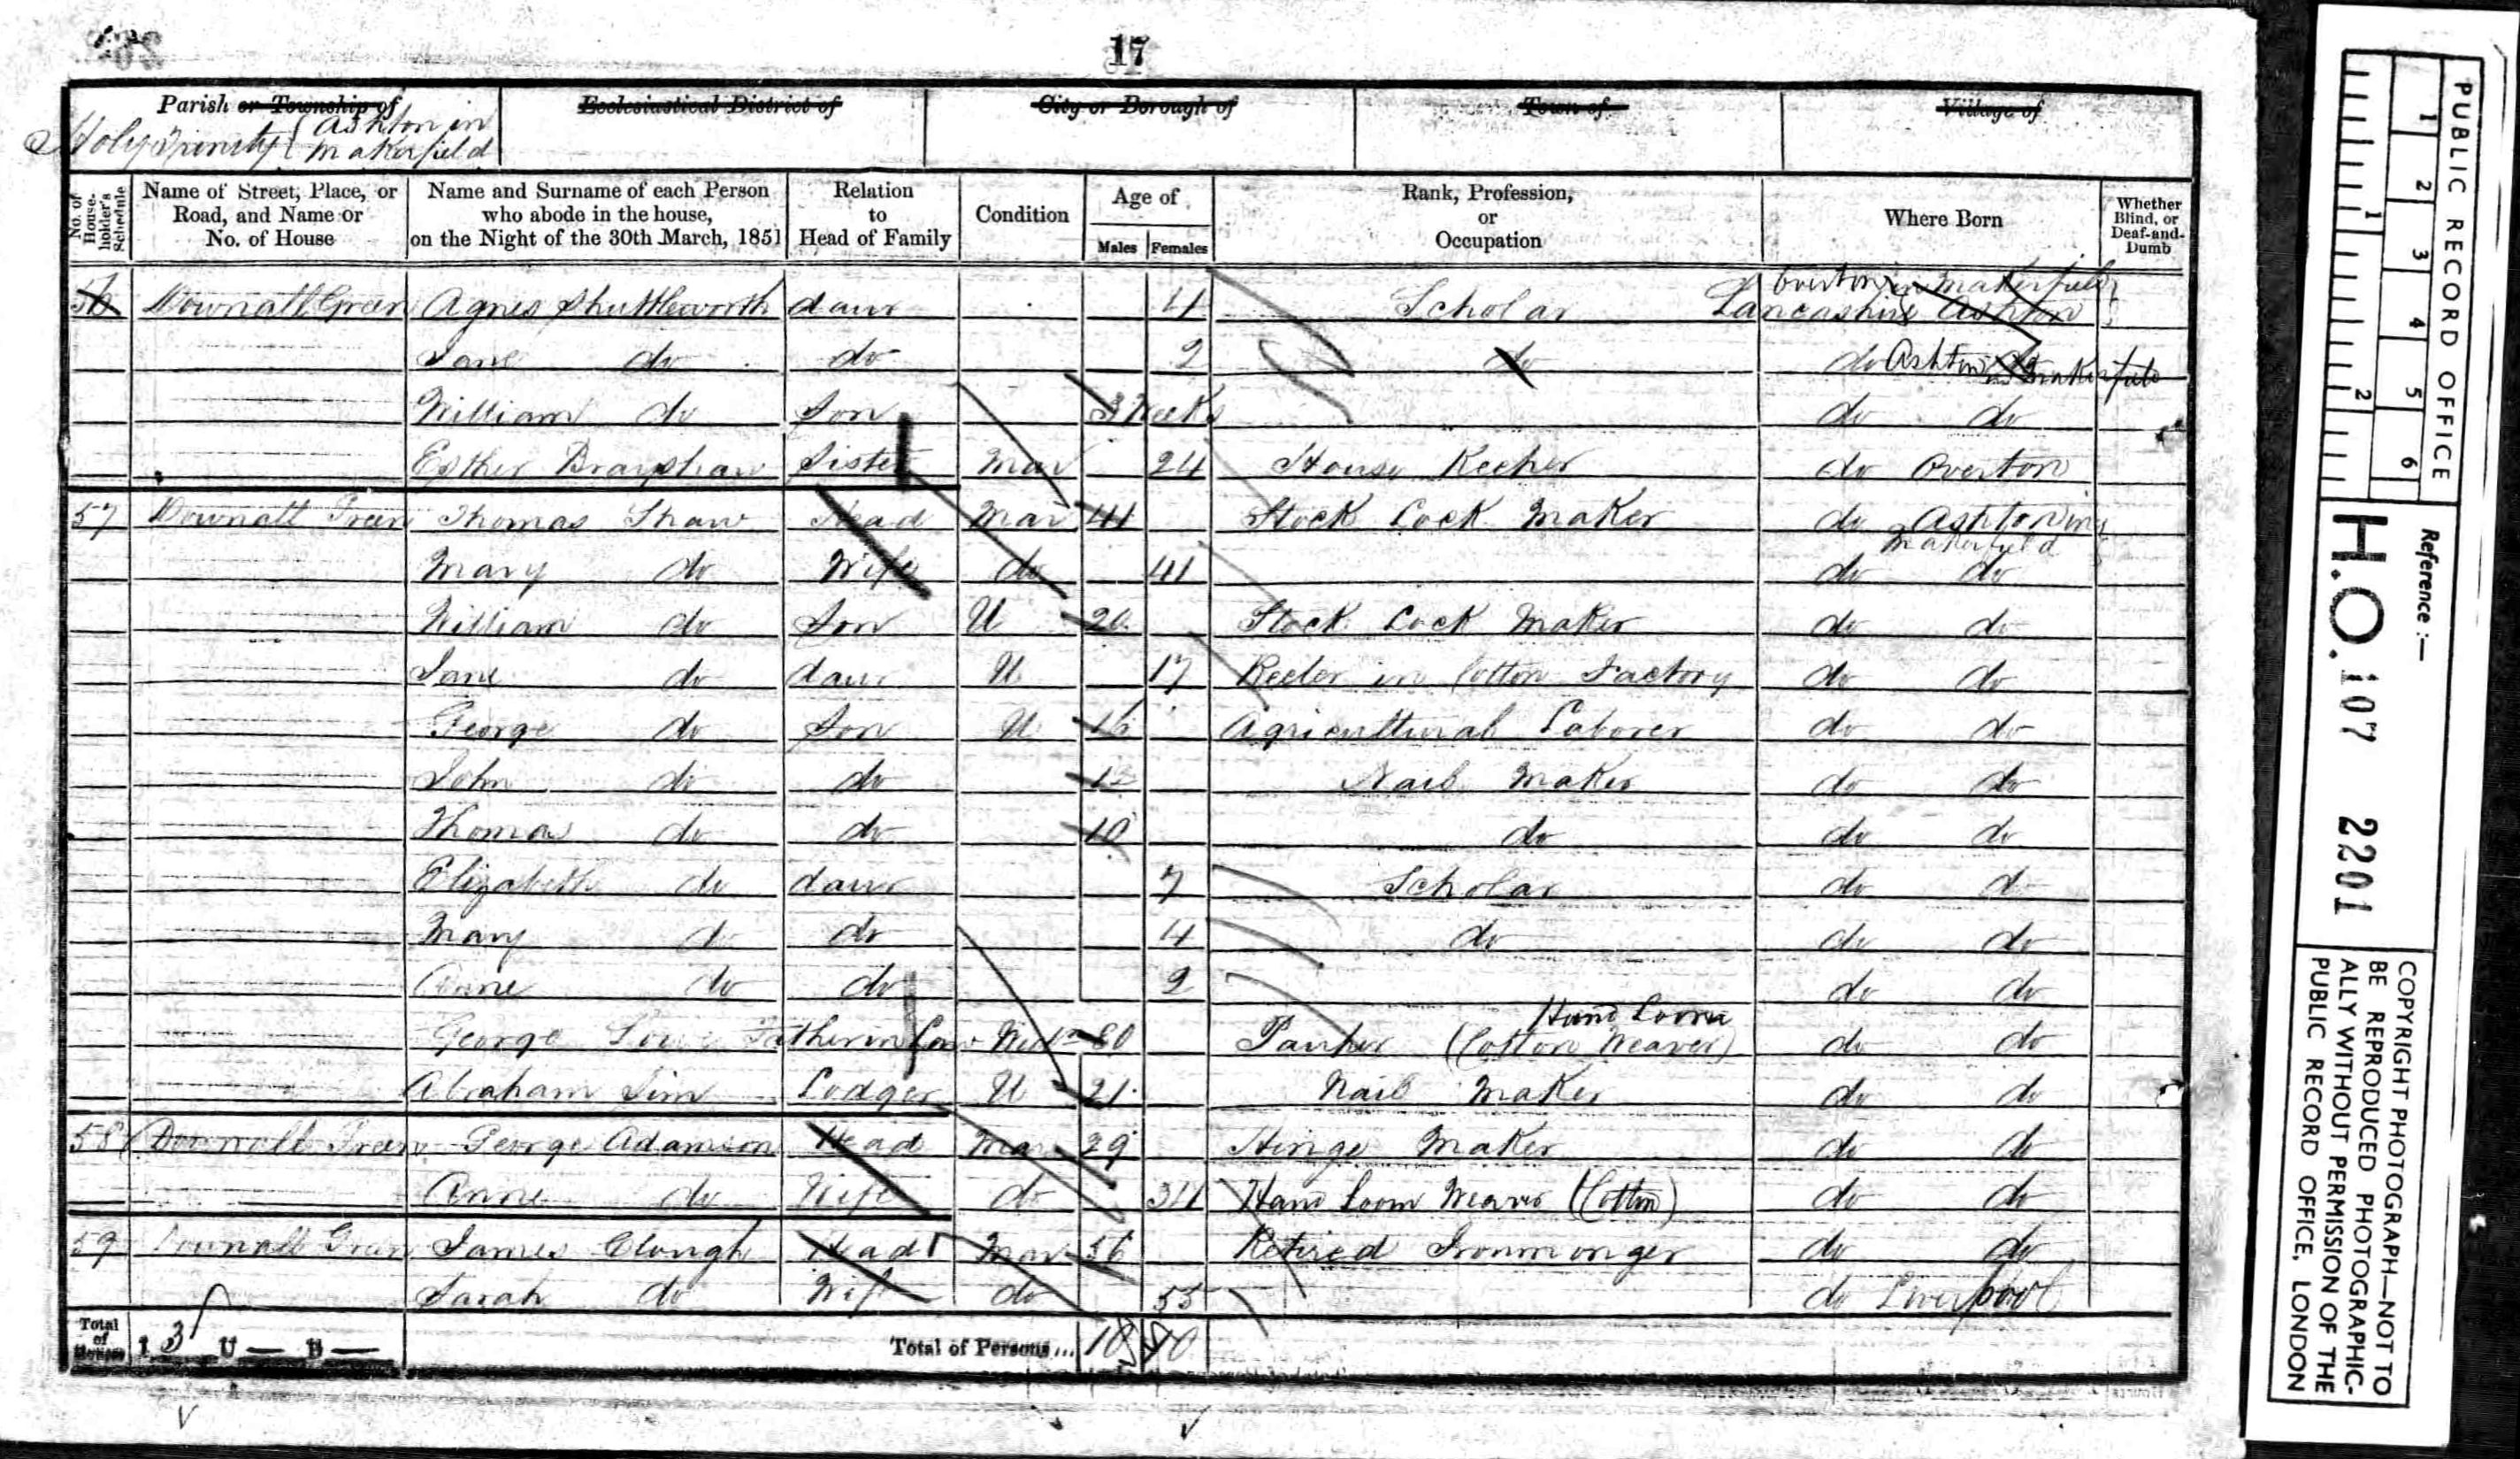 17
Parish or Township of
Ecclesiastical District of
City or Borough of
Town of
Village of
Holy Trinity { Ashton in
Makerfield
No. of House-holder's Schedule
Name of Street, Place, or Road, and Name or No. of House
Name and Surname of each Person who abode in the house, on the Night of the 30th March, 1851
Relation to Head of Family
Condition
Age of
Males
Females
Rank, Profession, or Occupation
Where Born
Whether Blind, or Deaf-and-Dumb
Overton in Makerfield
56 Downall Green Agnes Shuttleworth daur 4 Scholar Lancashire Ashton
Jane do do 2 do do Ashton in Makerfield
William do Son 3 Weeks do do
Esther Brayshaw Sister Mar 24 House Keeper do Overton
57 Downall Green Thomas Shaw Head Mar 41 Stock Lock Maker do Ashton in
Makerfield
Mary do Wife do 41 do do
William do Son U 20 Stock Lock Maker do do
Jane do daur U 17 Reeler in Cotton Factory do do
George do Son U 16 Agricultural Laborer do do
John do do 12 Nail Maker do do
Thomas do do 10 do do do
Elizabeth do daur 7 Scholar do do
Mary do do 4 do do do
Anne do do 2 do do
Hand Loom
George Father in Law 80 Pauper (Cotton Weaver) do do
Abraham Sim Lodger U 21 Nail Maker do do
58 Downall Green George Adamson Head Mar 29 Hinge Maker do do
Anne do Wife do 34 Hand Loom Weaver (Cotton) do do
59 Downall Green James Clough Head Mar 56 Retired Ironmonger do do
Sarah do Wife do 55 do Liverpool
Total of Houses I 3 U — B —
Total of Persons... 10 10
PUBLIC RECORD OFFICE
1 2 3 4 5 6
1 2
Reference :—
H.O. 107 2201
COPYRIGHT PHOTOGRAPH—NOT TO
BE REPRODUCED PHOTOGRAPHIC-
ALLY WITHOUT PERMISSION OF THE
PUBLIC RECORD OFFICE, LONDON